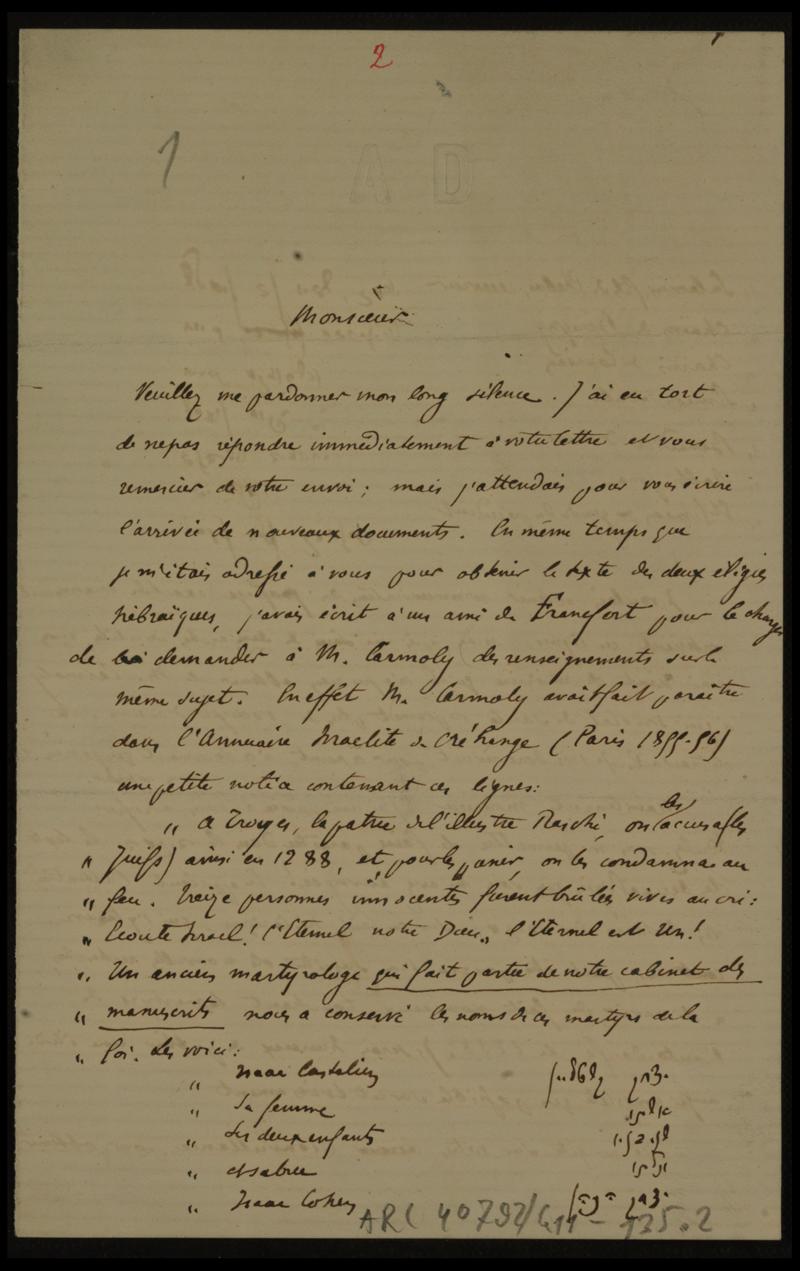 2
1
A D
Monsieur
Veuillez me pardonner mon long silence. J'ai eu tort
de ne pas répondre immédiatement à votre lettre et vous
remercier de votre envoi; mais j'attendais pour vous écrire
l'arrivée de nouveaux documents. En même temps que
je m'étais adressé à vous pour obtenir le texte des deux élégies
hébraïques, j'avais écrit à un ami de Francfort pour le charger
de demander à M. Carmoly des renseignements sur le
même sujet. En effet M. Carmoly avait fait paraître
dans l'Annuaire Israélite de Créhange (Paris 1855-56)
une petite notice contenant ces lignes:
" A Troyes, la patrie de l'illustre Raschi, on les accusa (les
" Juifs) ainsi en 1288, et, pour les punir, on les condamna au
" feu. Treize personnes innocentes furent brûlées vives au cri:
" Ecoute Israel! l'Eternel notre Dieu, l'Eternel est Un!
" Un ancien martyrologe qui fait partie de notre cabinet des
" manuscrits nous a conservé les noms de ces martyrs de la
" foi. Les voici:
" Isaac Castelin יצחק
" Sa femme אשתו
" Ses deux enfants
" et sa bru
" Isaac Cohen יצחק הכהן
ARC 4° 792/G11-135.2